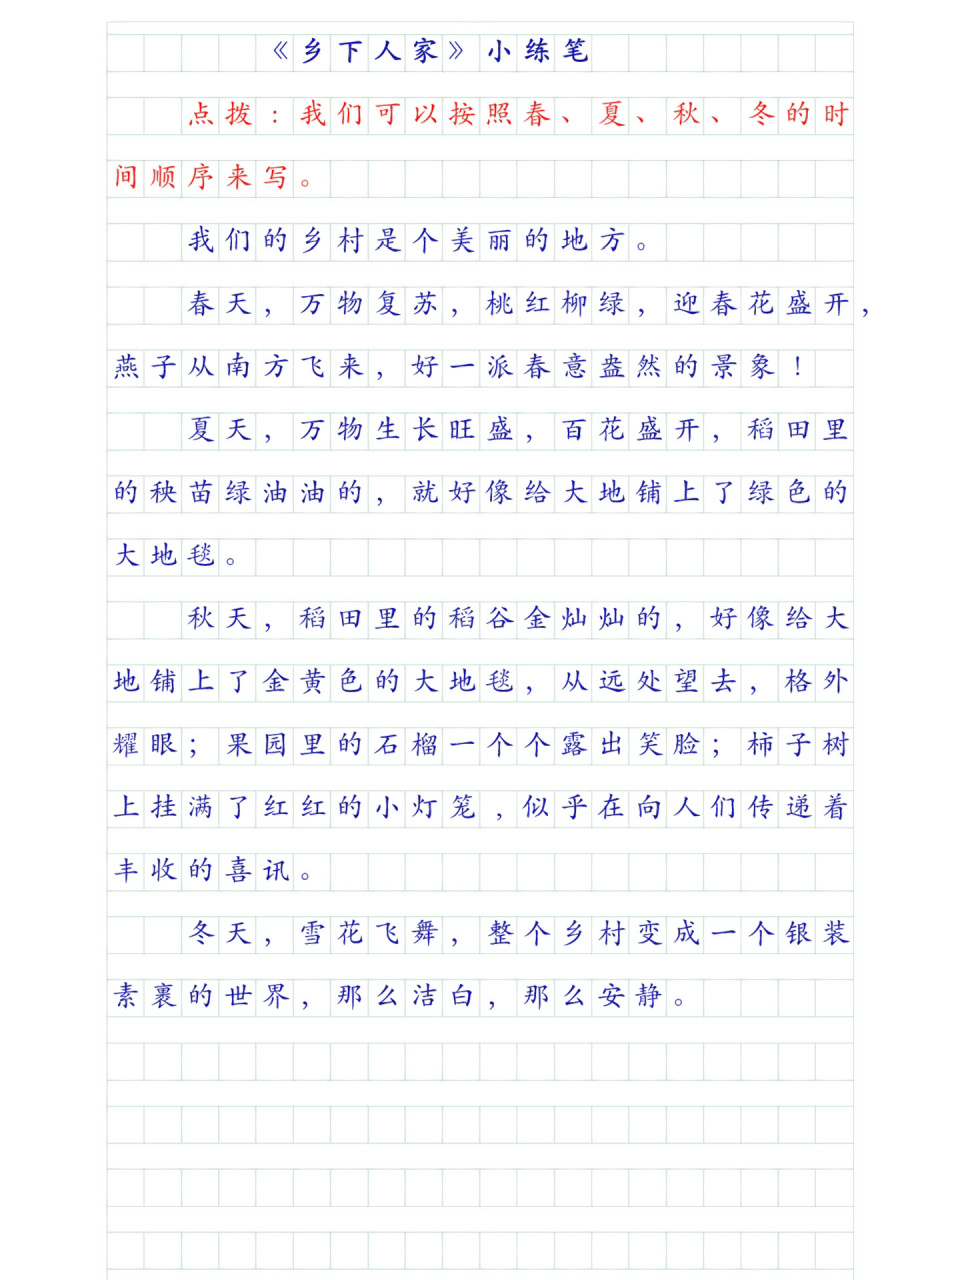 《乡下人家》小练笔
点拨：我们可以按照春、夏、秋、冬的时
间顺序来写。
我们的乡村是个美丽的地方。
春天，万物复苏，桃红柳绿，迎春花盛开，
燕子从南方飞来，好一派春意盎然的景象！
夏天，万物生长旺盛，百花盛开，稻田里
的秧苗绿油油的，就好像给大地铺上了绿色的
大地毯。
秋天，稻田里的稻谷金灿灿的，好像给大
地铺上了金黄色的大地毯，从远处望去，格外
耀眼；果园里的石榴一个个露出笑脸；柿子树
上挂满了红红的小灯笼，似乎在向人们传递着
丰收的喜讯。
冬天，雪花飞舞，整个乡村变成一个银装
素裹的世界，那么洁白，那么安静。